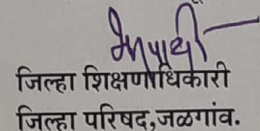 जिल्हा शिक्षणाधिकारी
जिल्हा परिषद,जळगांव.